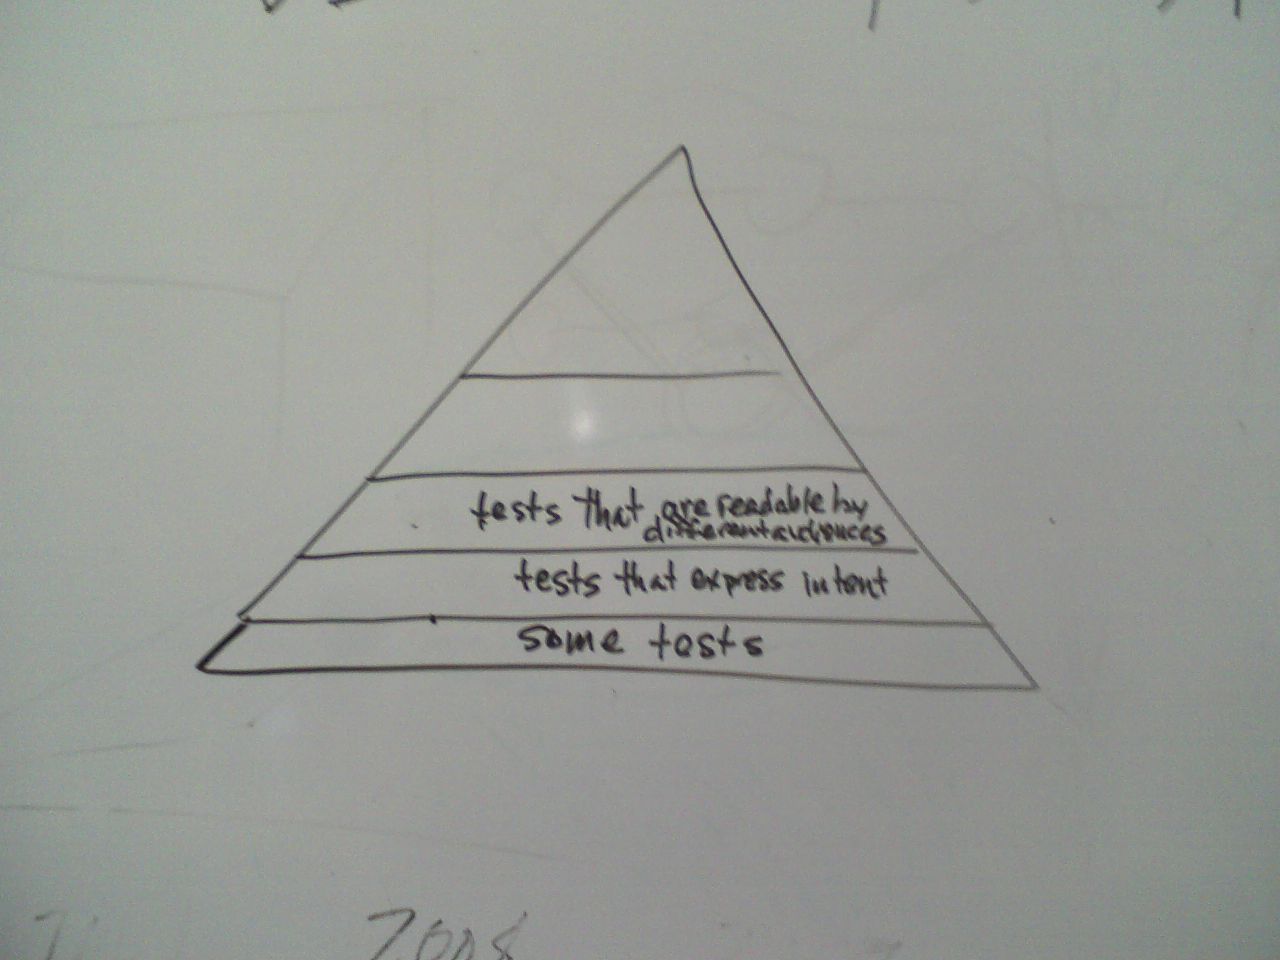 tests that are readable by
different audiences
tests that express intent
some tests
2008